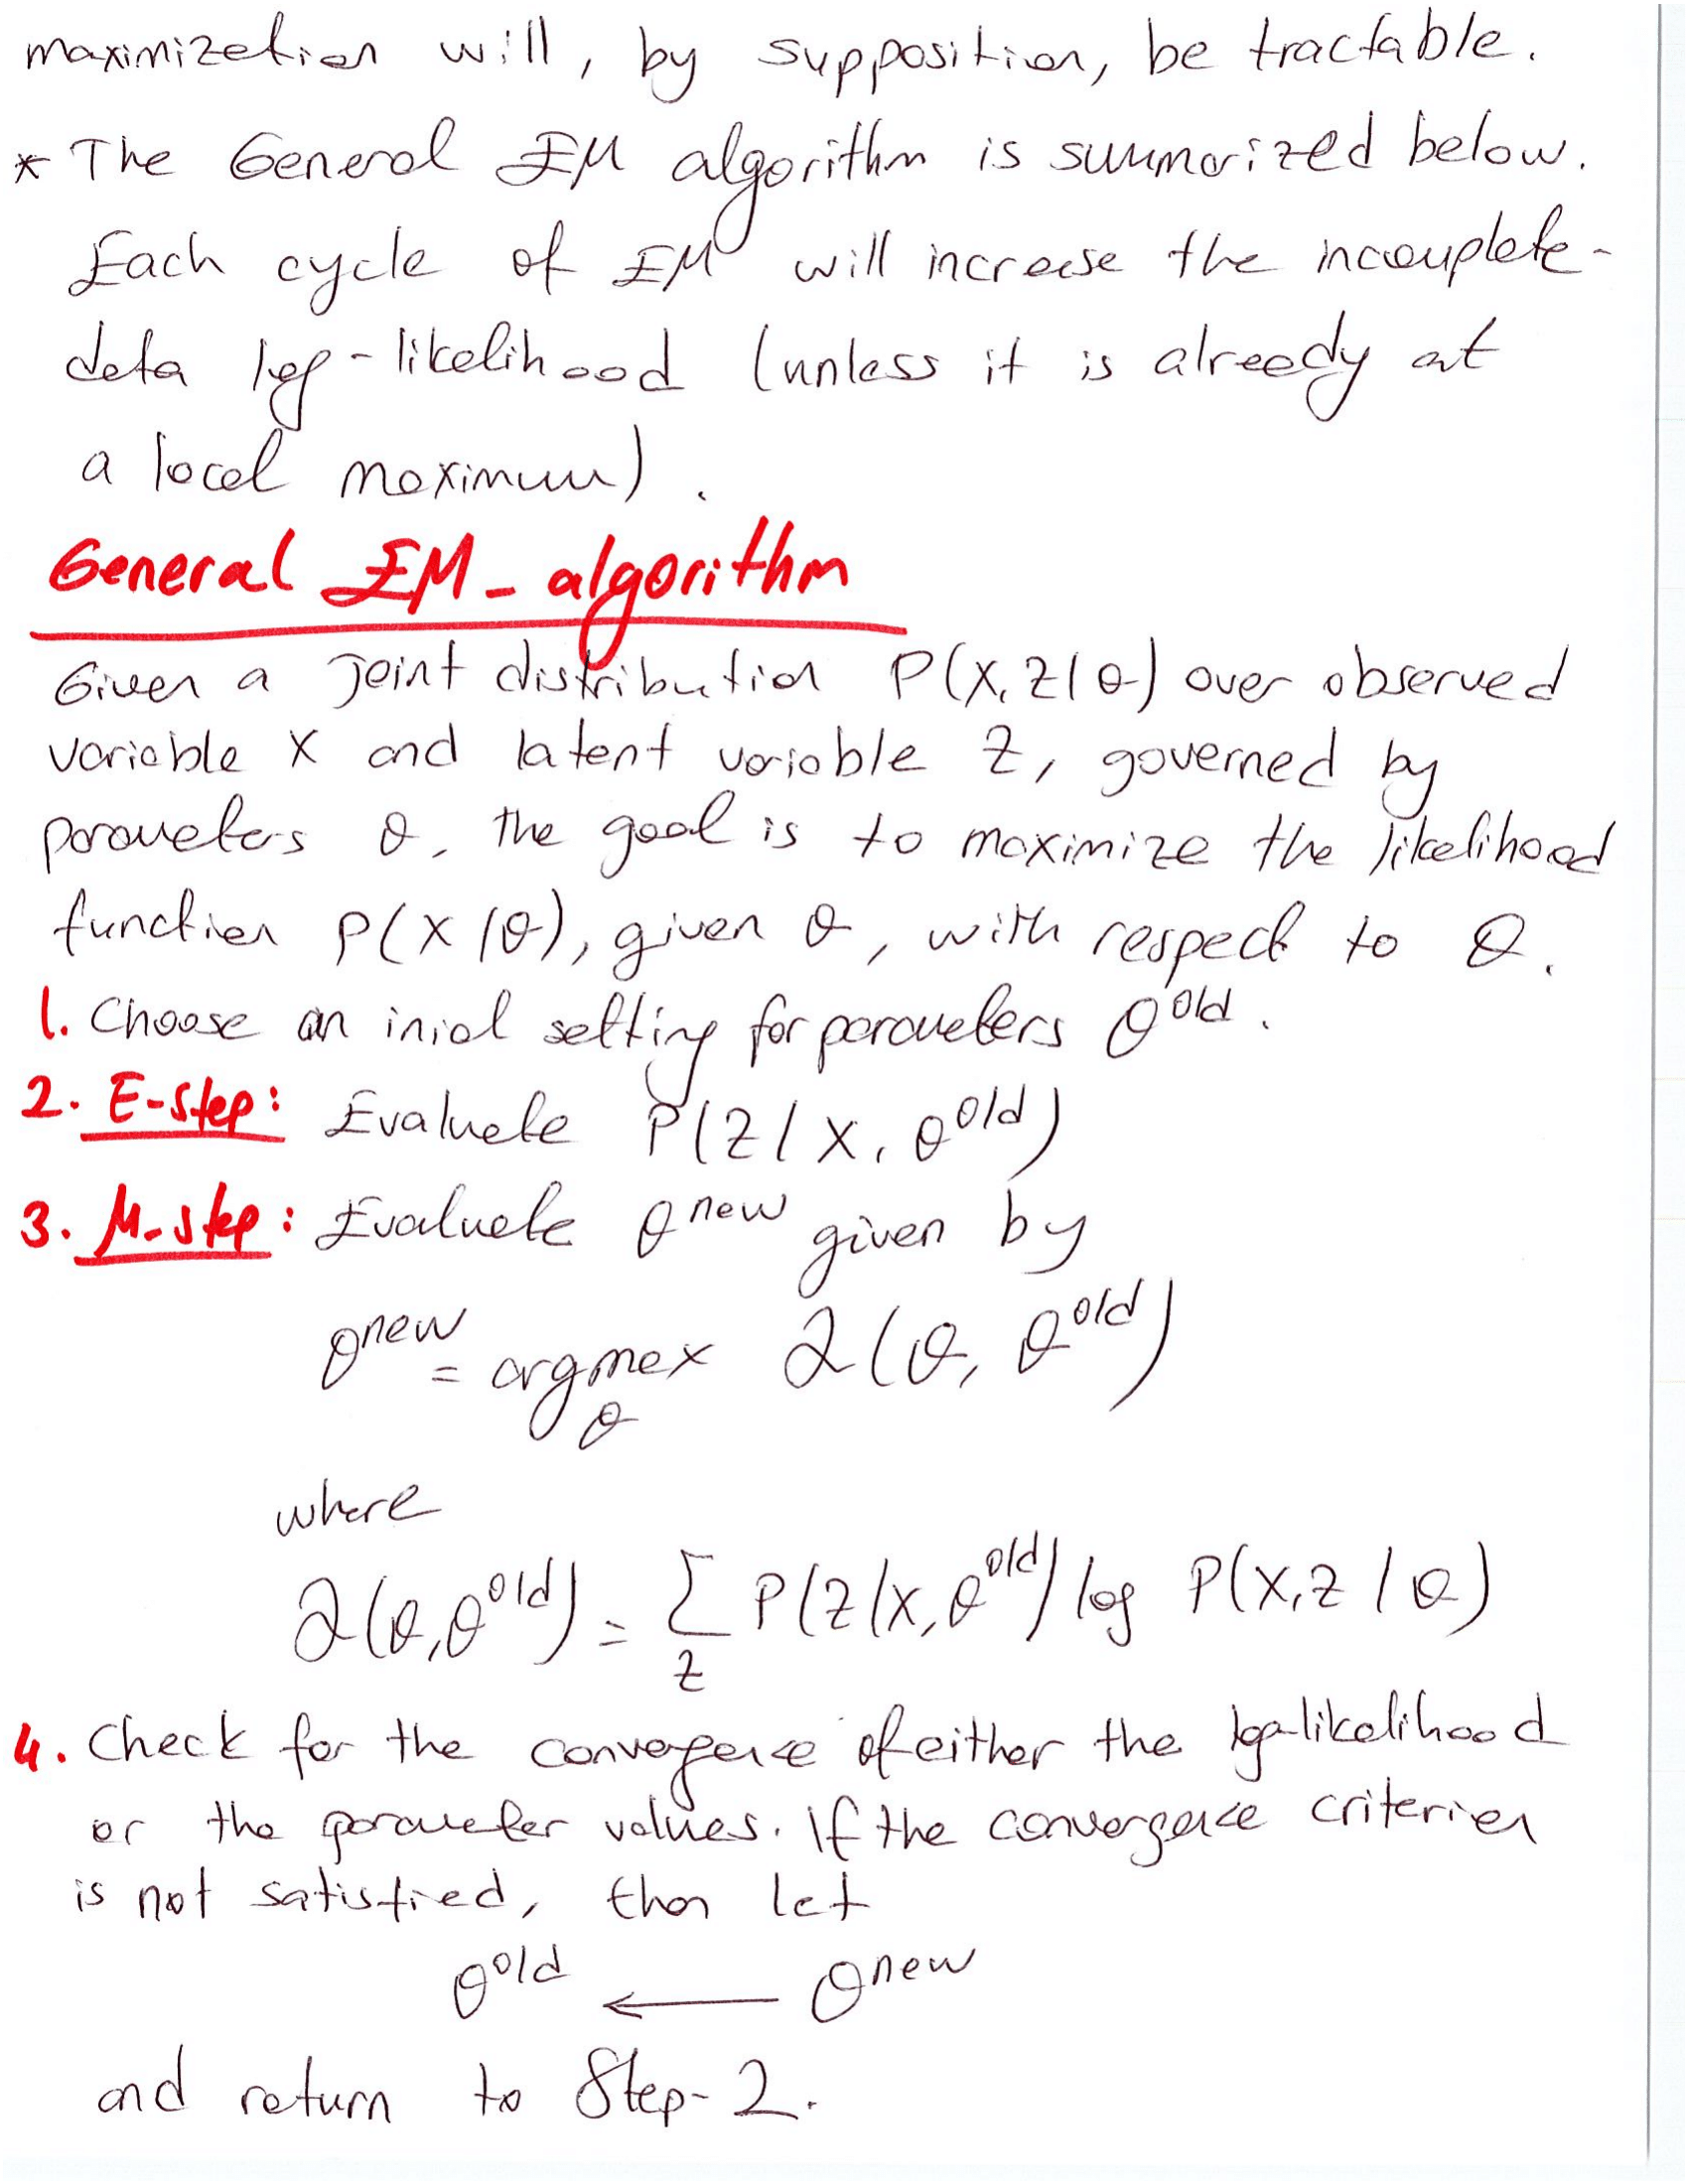 maximization will, by supposition, be tractable.
* The General EM algorithm is summarized below.
Each cycle of EM will increase the incomplete-
data log-likelihood (unless it is already at
a local maximum).
General EM-algorithm
Given a joint distribution P(X,Z|θ) over observed
variable X and latent variable Z, governed by
parameters θ, the goal is to maximize the likelihood
function P(X|θ), given θ, with respect to θ.
1. Choose an inial setting for parameters θ^old.
2. E-step: Evaluate P(Z|X, θ^old)
3. M-step: Evaluate θ^new given by
θ^new = argmax_θ Q(θ, θ^old)
where
Q(θ,θ^old) = Σ_Z P(Z|X,θ^old) log P(X,Z|θ)
4. Check for the convergence of either the log-likelihood
or the parameter values. If the convergence criterion
is not satisfied, then let
θ^old ← θ^new
and return to Step-2.